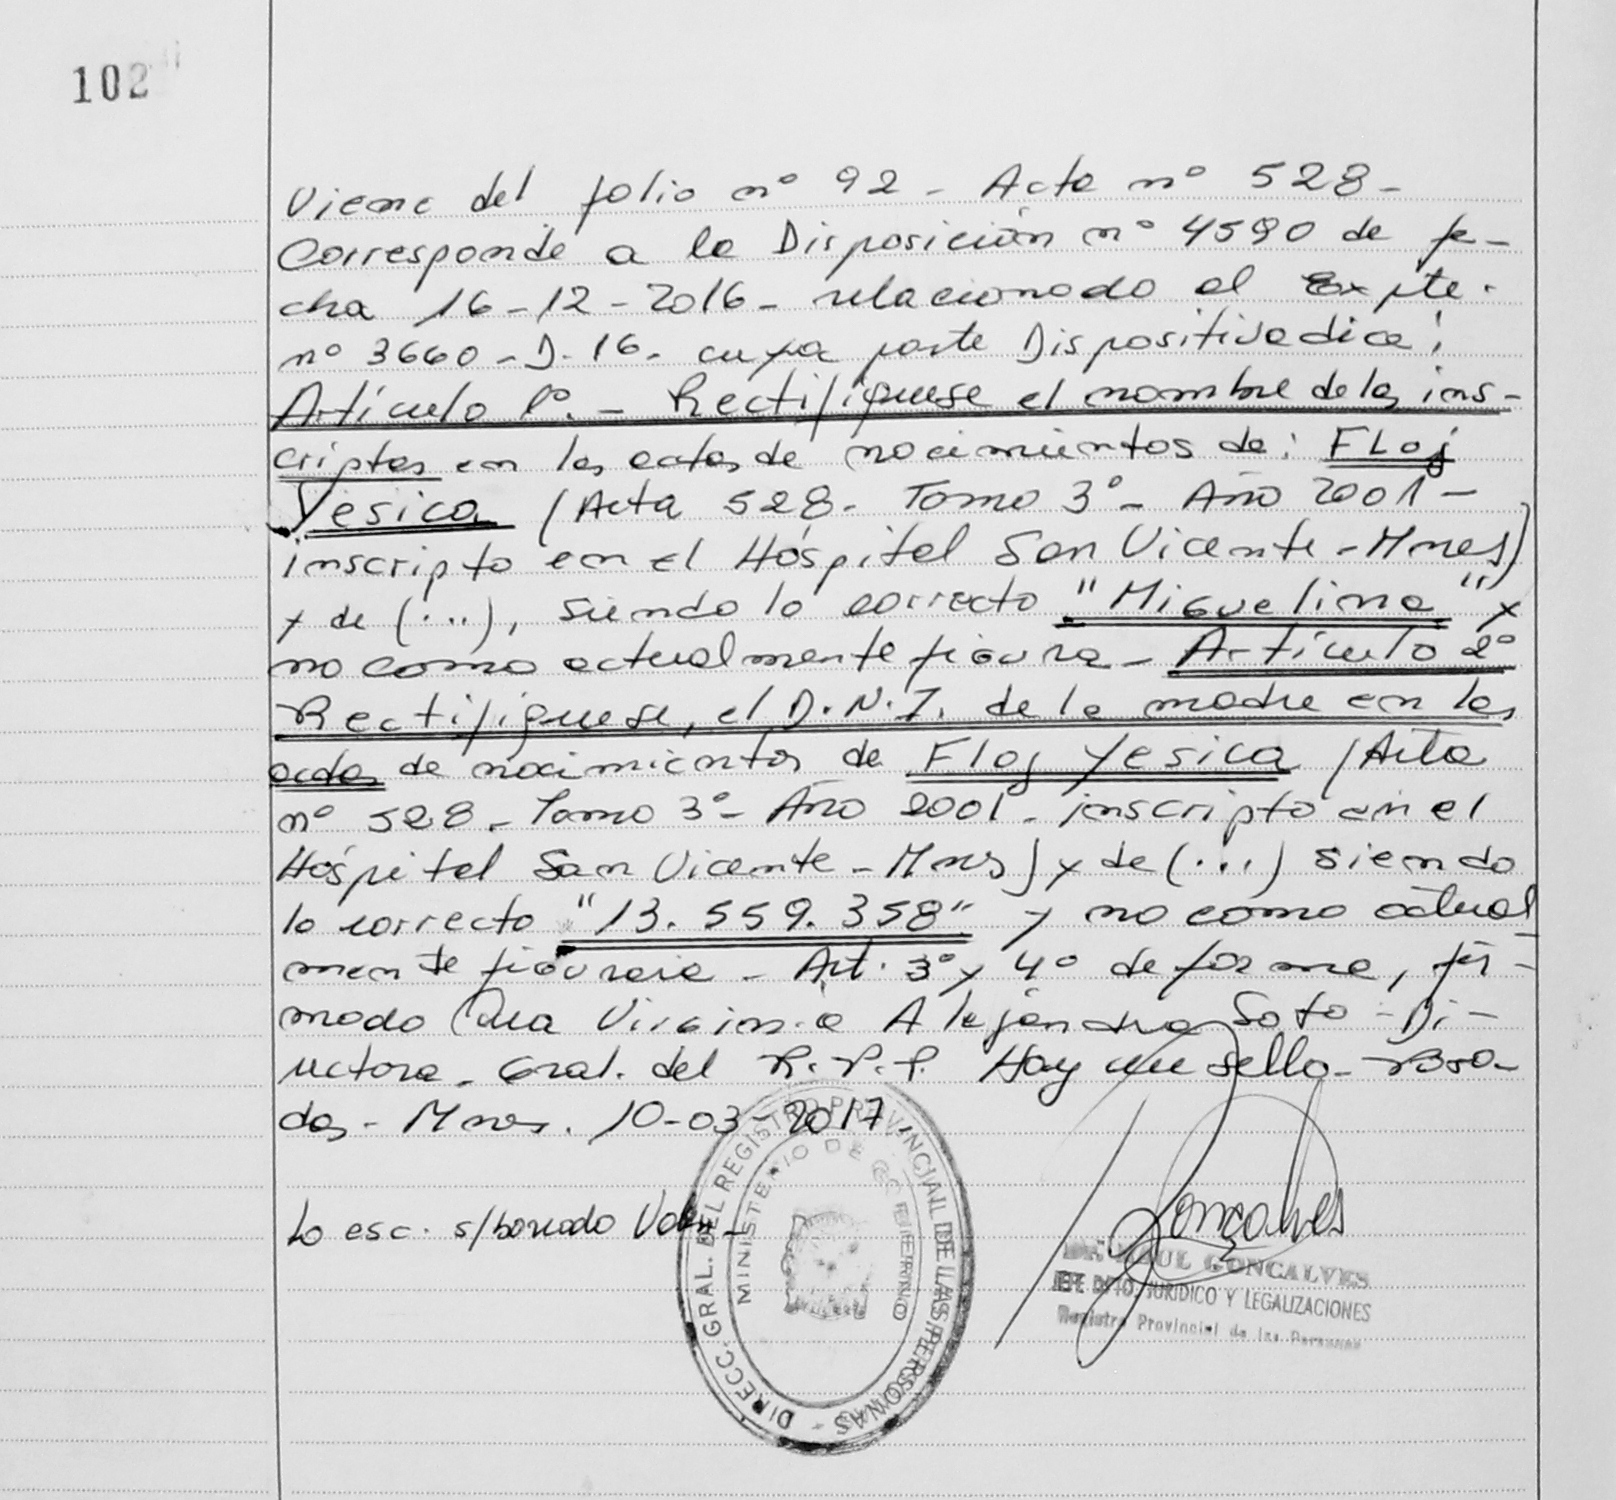 102
Viene del folio nº 92 - Acta nº 528 -
Corresponde a la Disposición nº 4590 de fe-
cha 16-12-2016 - relacionado al Expte.
nº 3660-D-16. cuya parte Dispositiva dice:
Artículo 1º. - Rectifíquese el nombre de las ins-
criptas en las actas de nacimientos de: Floj
Yesica (Acta 528 - Tomo 3º - Año 2001 -
inscripto en el Hospital San Vicente - Mnes)
y de (...), siendo lo correcto "Miguelina" y
no como actualmente figura - Artículo 2º
Rectifíquese, el D.N.I. de la madre en las
actas de nacimientos de Floj Yesica (Acta
nº 528 - Tomo 3º - Año 2001 - inscripto en el
Hospital San Vicente - Mnes) y de (...) siendo
lo correcto "13.559.358" y no como actual
mente figurara - Art. 3º y 4º de forma, fir-
mado Dra Virginia Alejandra Soto - Di-
rectora - Gral. del R.P.P. Hay un sello - Posa-
das - Mnes. 10-03-2017.
Lo esc. s/borrado Vale -
DIRECC. GRAL. DEL REGISTRO PROVINCIAL DE LAS PERSONAS -
MINISTERIO DE GOBIERNO
Goncalves
RAUL GONCALVES
JEFE DPTO. JURIDICO Y LEGALIZACIONES
Registro Provincial de las Personas